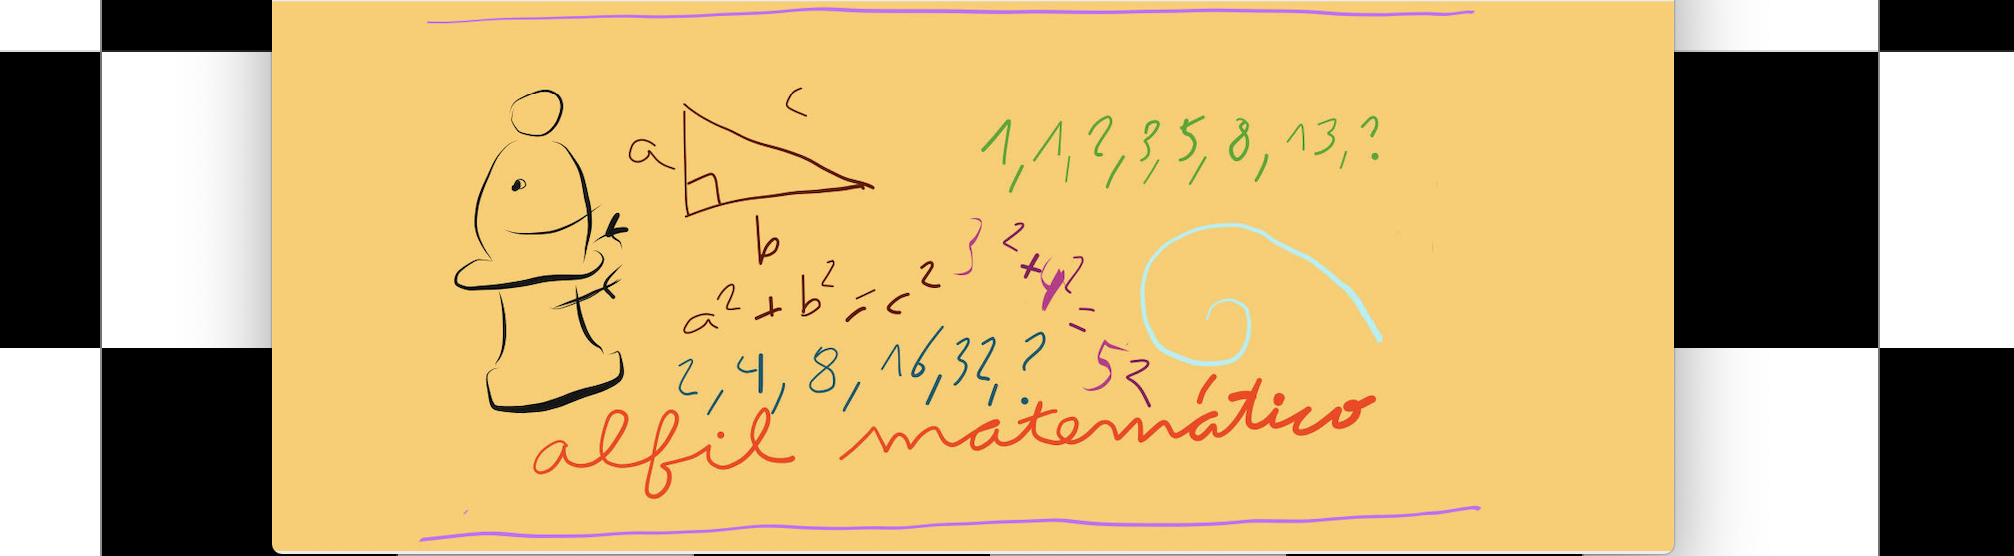 c
a
1, 1, 2, 3, 5, 8, 13, ?
b
a² + b² = c²
3² + 4² = 5²
2, 4, 8, 16, 32, ?
alfil matemático